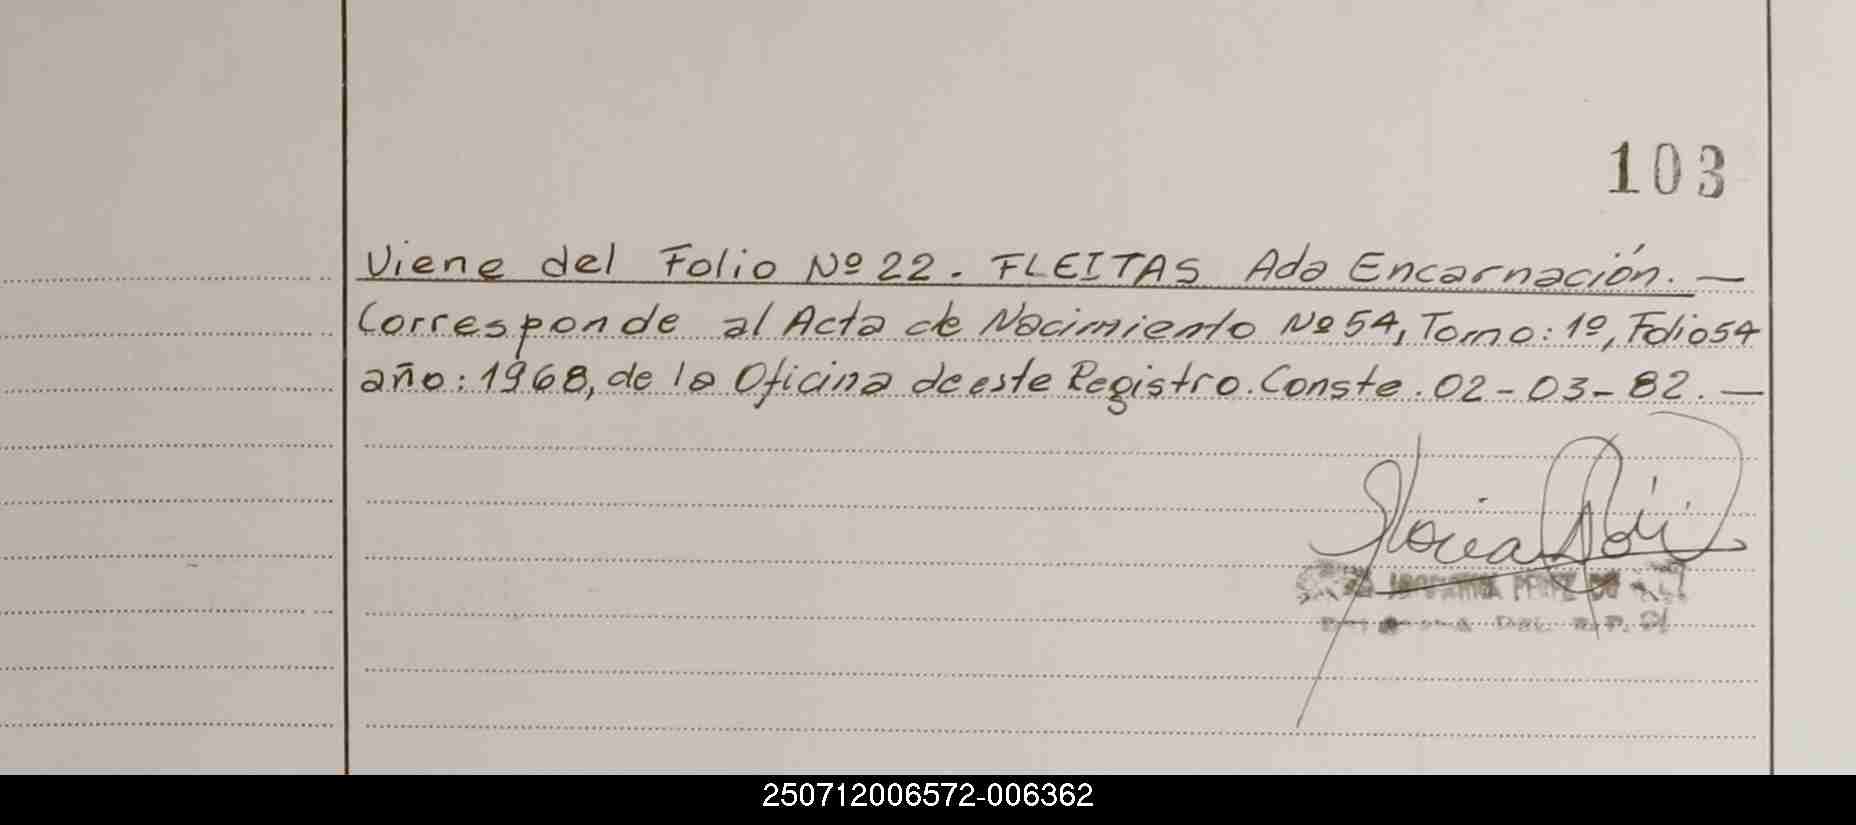 103
Viene del Folio Nº 22. FLEITAS Ada Encarnación. —
Corresponde al Acta de Nacimiento Nº 54, Tomo: 1º, Folio 54
año: 1968, de la Oficina de este Registro. Conste. 02-03-82. —
250712006572-006362